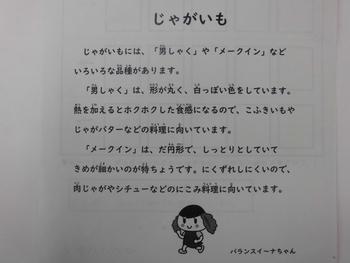 じゃがいも
じゃがいもには、「男しゃく」や「メークイン」など
いろいろな品種があります。
「男しゃく」は、形が丸く、白っぽい色をしています。
熱を加えるとホクホクした食感になるので、こふきいもや
じゃがバターなどの料理に向いています。
「メークイン」は、だ円形で、しっとりとしていて
きめが細かいのが特ちょうです。にくずれしにくいので、
肉じゃがやシチューなどのにこみ料理に向いています。
バランスイーナちゃん